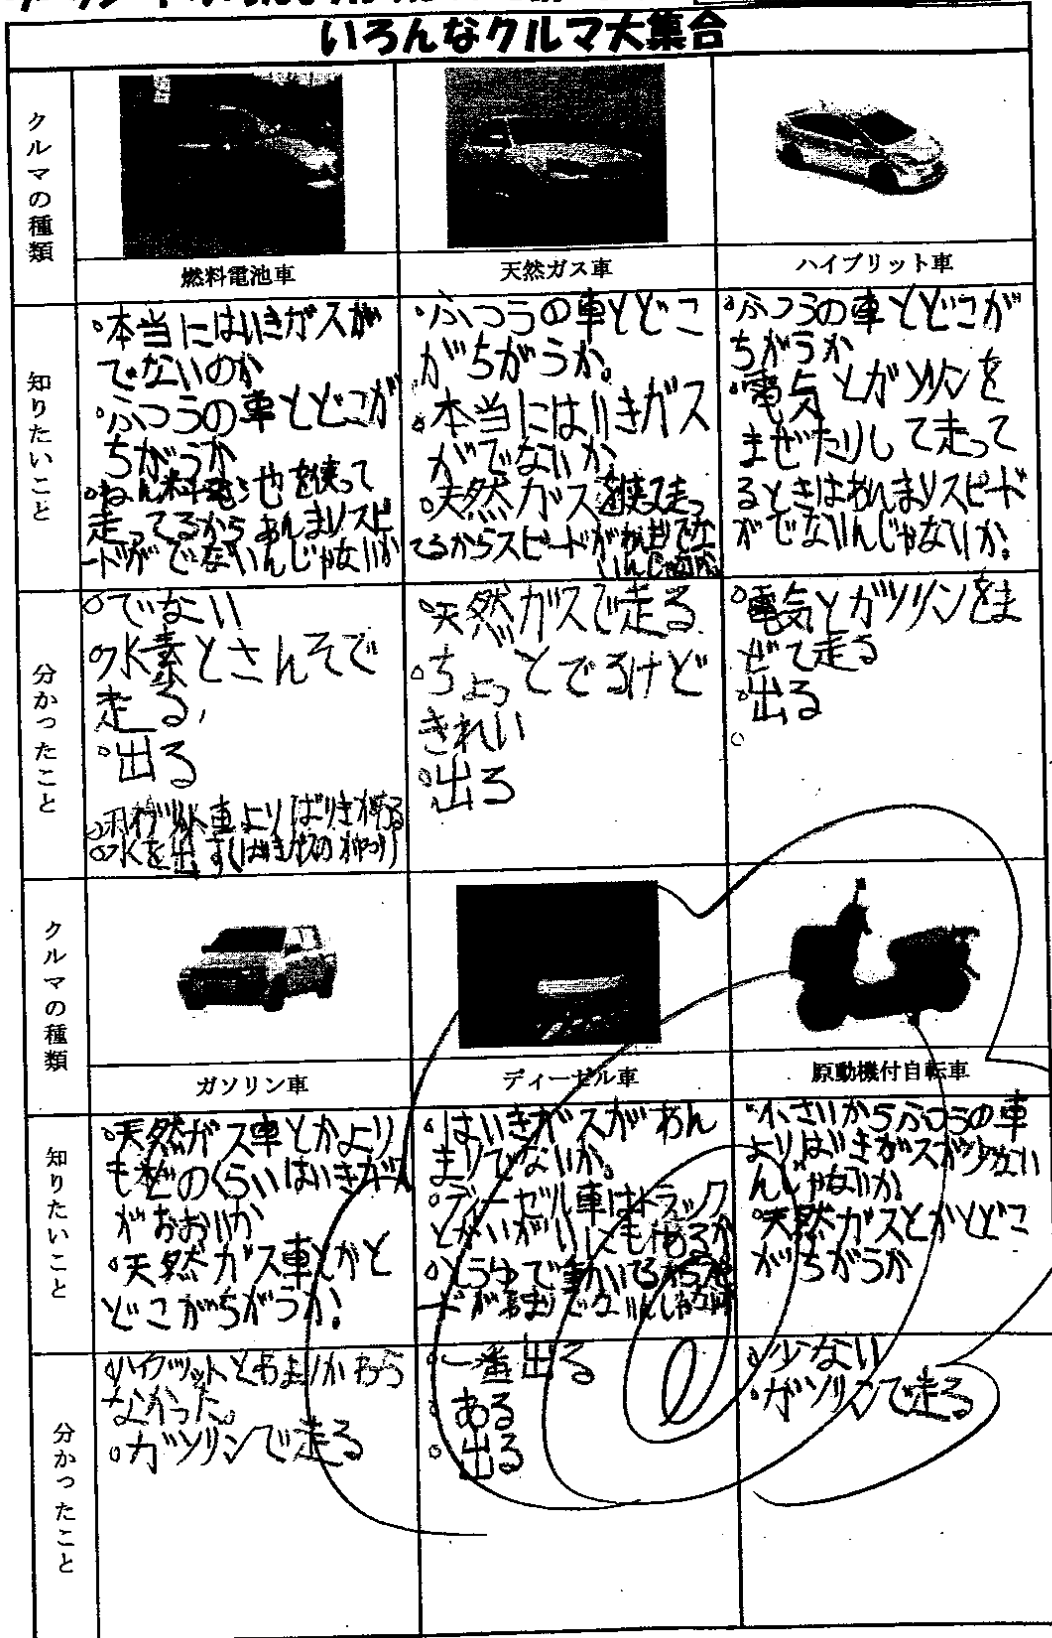 いろんなクルマ大集合
クルマの種類
燃料電池車
天然ガス車
ハイブリット車
知りたいこと
。本当にはいきガスが
でないのか
。ふつうの車とどこが
ちがうか
ねん料電池を使って
走ってるからあんまりスピ
ードがでないんじゃないか
・ふつうの車とどこ
がちがうか。
。本当にはいきガス
がでないか
。天然ガスを使って走っ
てるからスピードがあんまりでな
いんじゃないか
。ふつうの車とどこが
ちがうか
。電気とガソリンを
まぜたりして走って
るときはあんまりスピード
がでないんじゃないか。
分かったこと
。でない
。水素とさんそで
走る
。出る
車よりばりきがある
。水を出す
。天然ガスで走る
。ちょっとでるけど
きれい
。出る
。電気とガソリンをま
ぜて走る
。出る
。
クルマの種類
ガソリン車
ディーゼル車
原動機付自転車
知りたいこと
。天然ガス車とかより
もどのくらいはいきガス
がおおいか
。天然ガス車とかと
どこがちがうか。
。はいきガスがあん
まりでないか。
。ディーゼル車はトラック
とかいがいにもあるか
。とうゆで動いてるから
ードがあまりでないんじゃないか
・小さいからふつうの車
よりはいきガスが少ない
んじゃないか
。天然ガスとかとどこ
がちがうか
分かったこと
。ハイブリットとあまりかわら
なかった。
。ガソリンで走る
。一番出る
。ある
。出る
。少ない
。ガソリンで走る